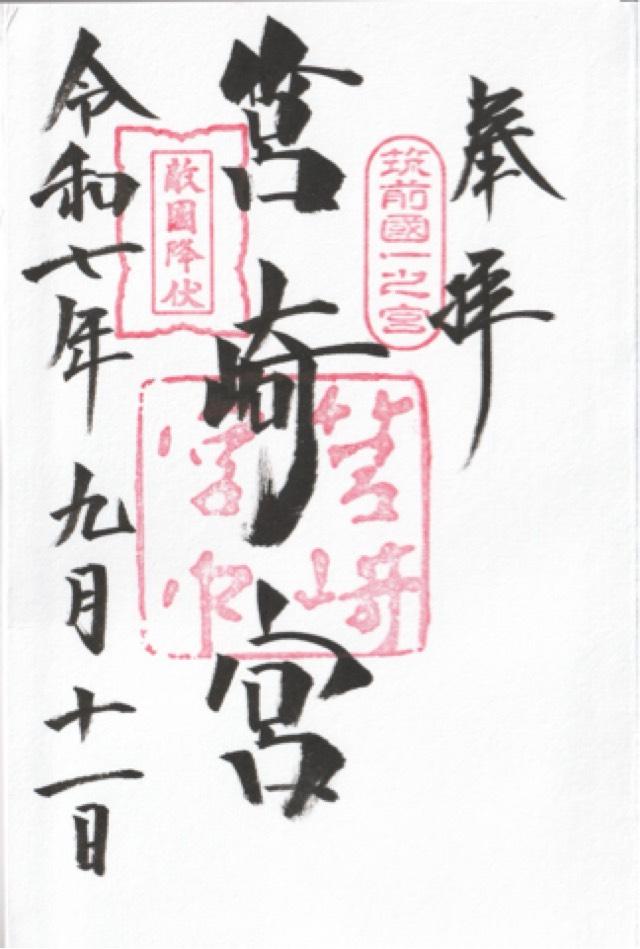 奉拝
筑前國一之宮
筥崎宮
筥崎
宮印
敵國降伏
令和七年九月十一日